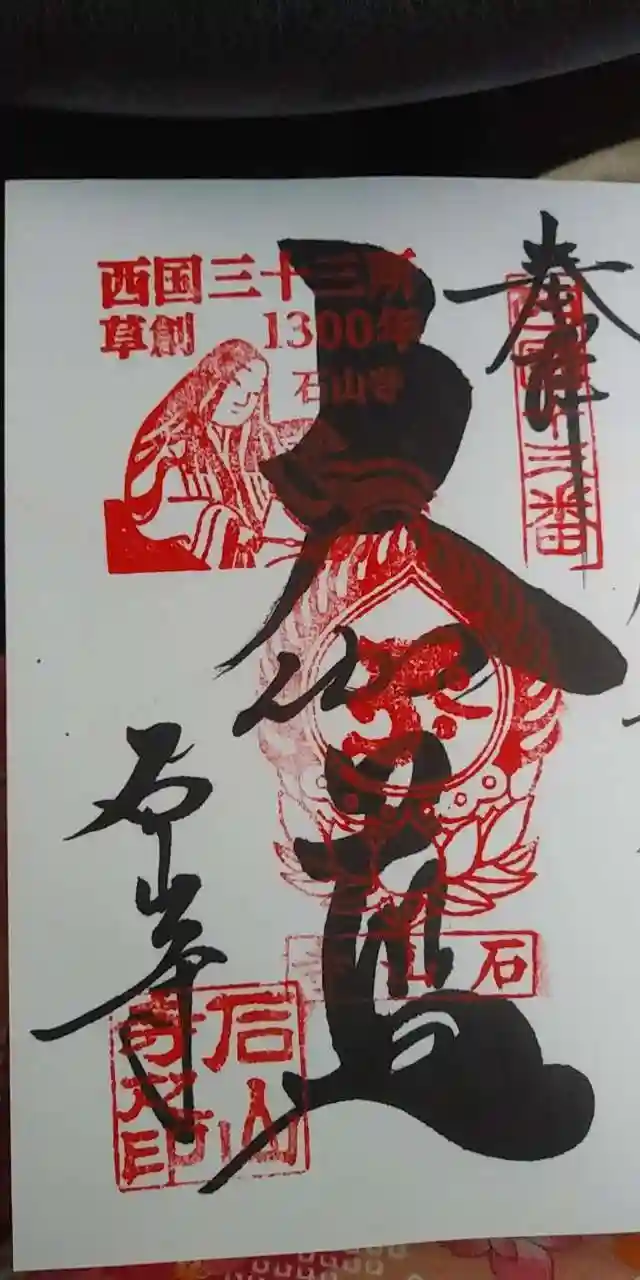 奉拝
西国十三番
西国三十三所
草創 1300年
石山寺
大伽藍
石山寺
石山寺
石山寺之印